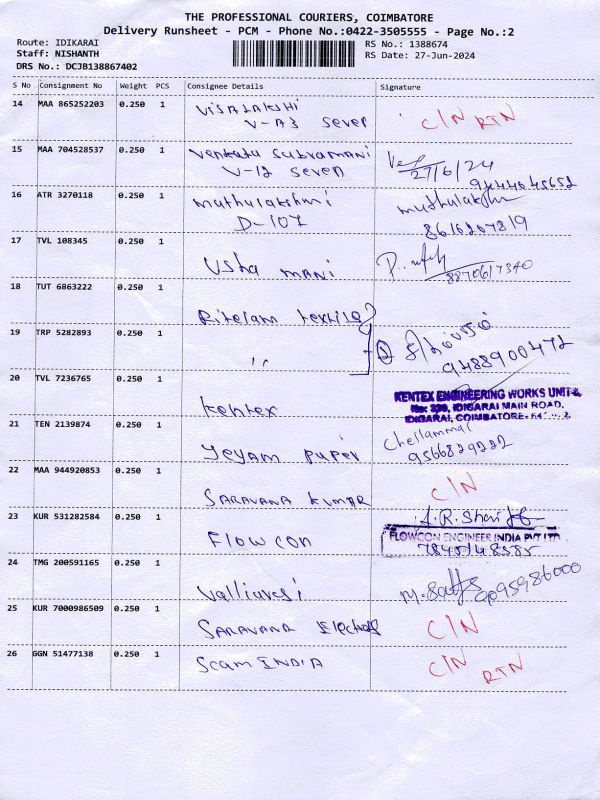 THE PROFESSIONAL COURIERS, COIMBATORE
Delivery Runsheet - PCM - Phone No.:0422-3505555 - Page No.:2
Route: IDIKARAI
RS No.: 1388674
Staff: NISHANTH
RS Date: 27-Jun-2024
DRS No.: DCJB138867402
S No Consignment No Weight PCS Consignee Details Signature
14 MAA 865252203 0.250 1 VISALAKSHI
V-A3 Seven C/N RTN
15 MAA 704528537 0.250 1 Venkata Subramani
V-12 Seven 27/6/24
9444045652
16 ATR 3270118 0.250 1 Muthulakshmi muthulakshmi
D-107 8616207819
17 TVL 108345 0.250 1
Usha mani 8870617340
18 TUT 6863222 0.250 1
textile
19 TRP 5282893 0.250 1
" 9488900472
20 TVL 7236765 0.250 1
Kentex KENTEX ENGINEERING WORKS UNIT-2,
No: 239, IDIGARAI MAIN ROAD,
IDIGARAI, COIMBATORE-
21 TEN 2139874 0.250 1 Chellammal
Jeyam Paper 9566829222
22 MAA 944920853 0.250 1
SARAVANA KUMAR C/N
23 KUR 531282584 0.250 1 A.R.
Flowcon FLOWCON ENGINEER INDIA PVT LTD
7845148585
24 TMG 200591165 0.250 1
Valliavesi 9095986000
25 KUR 7000986509 0.250 1
SARAVANA Electrols C/N
26 GGN 51477138 0.250 1 Scam INDIA C/N RTN